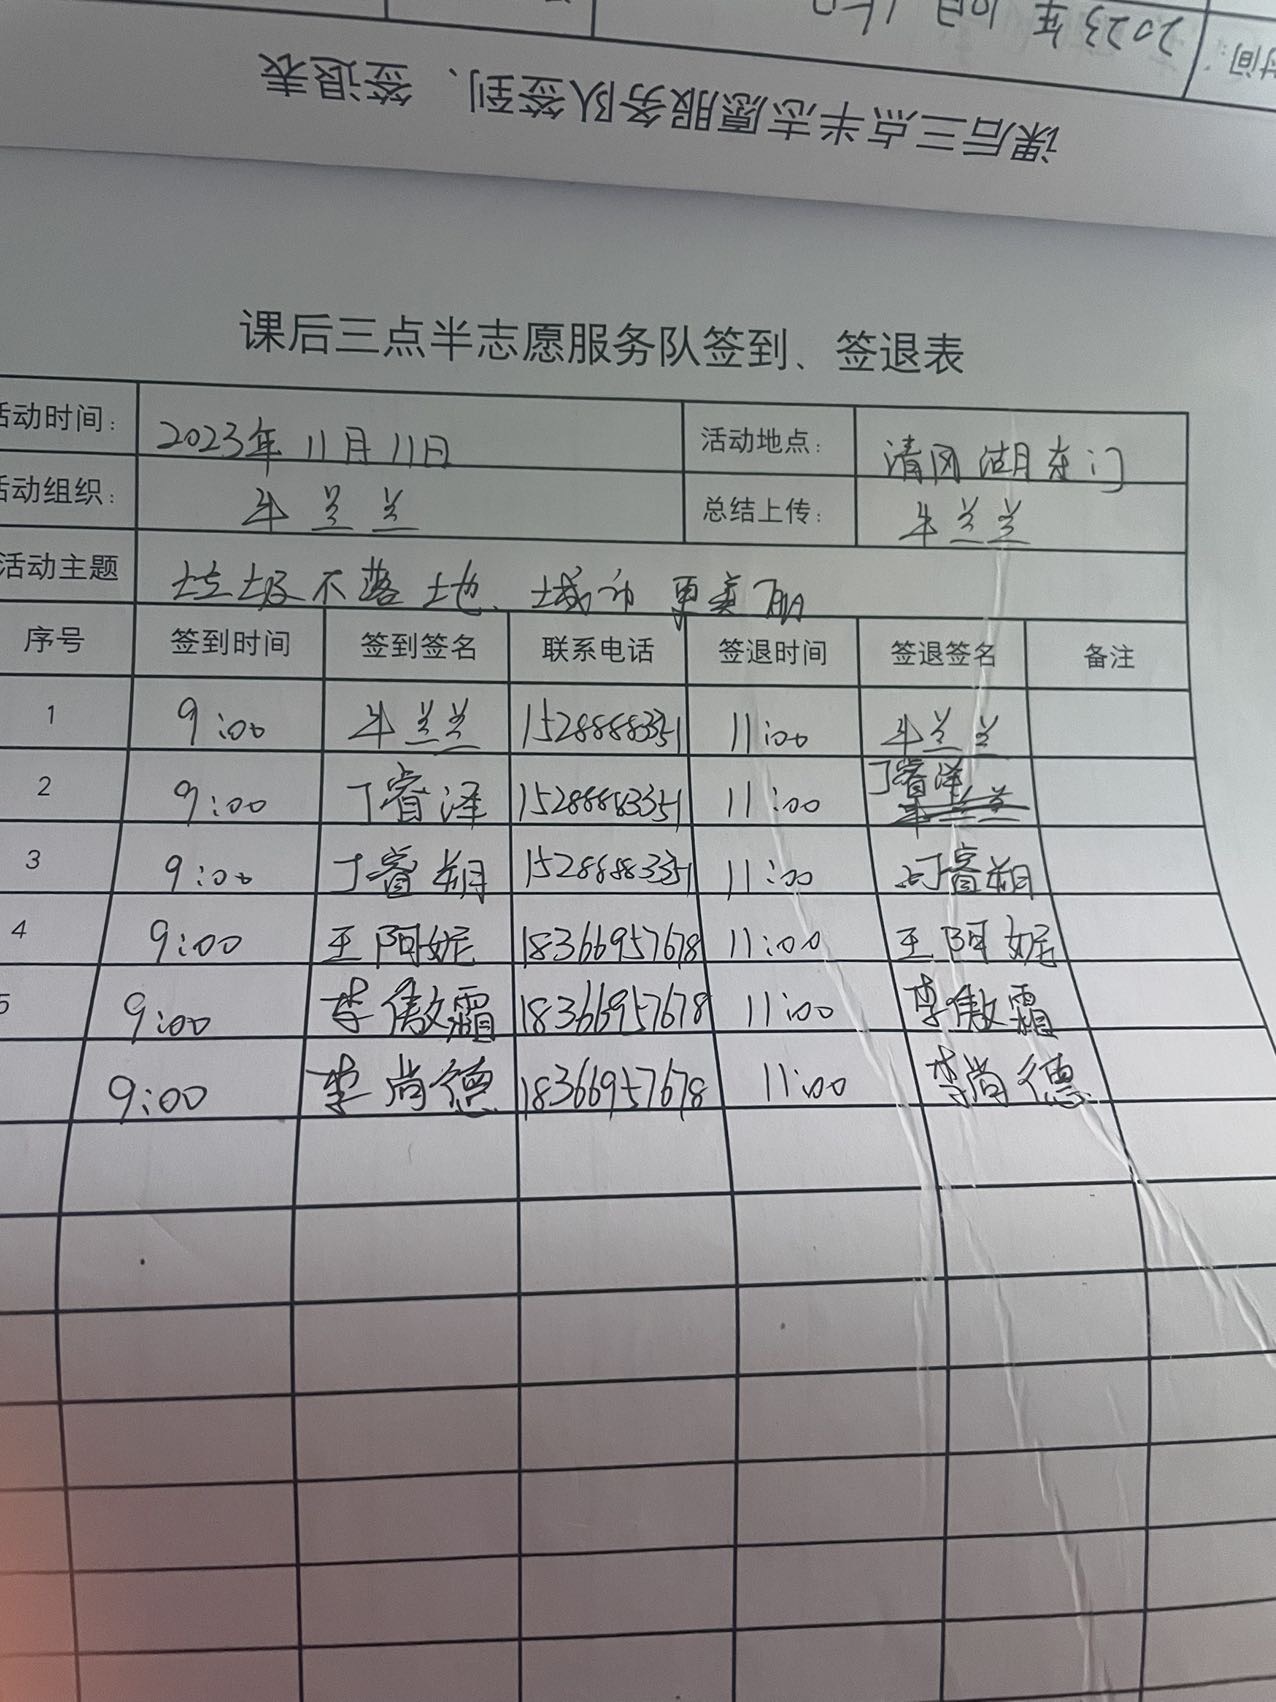 时间:
2023年10月
课后三点半志愿服务队签到、签退表
课后三点半志愿服务队签到、签退表
活动时间: 2023年11月11日 活动地点: 清风湖东门
活动组织: 牛兰兰 总结上传: 牛兰兰
活动主题 垃圾不落地、城市更美丽
序号 签到时间 签到签名 联系电话 签退时间 签退签名 备注
1 9:00 牛兰兰 15288883351 11:00 牛兰兰
2 9:00 丁睿泽 15288883351 11:00 丁睿泽
3 9:00 丁睿朔 15288883351 11:00 丁睿朔
4 9:00 王阿妮 18366957678 11:00 王阿妮
5 9:00 李傲霜 18366957678 11:00 李傲霜
9:00 李尚德 18366957678 11:00 李尚德